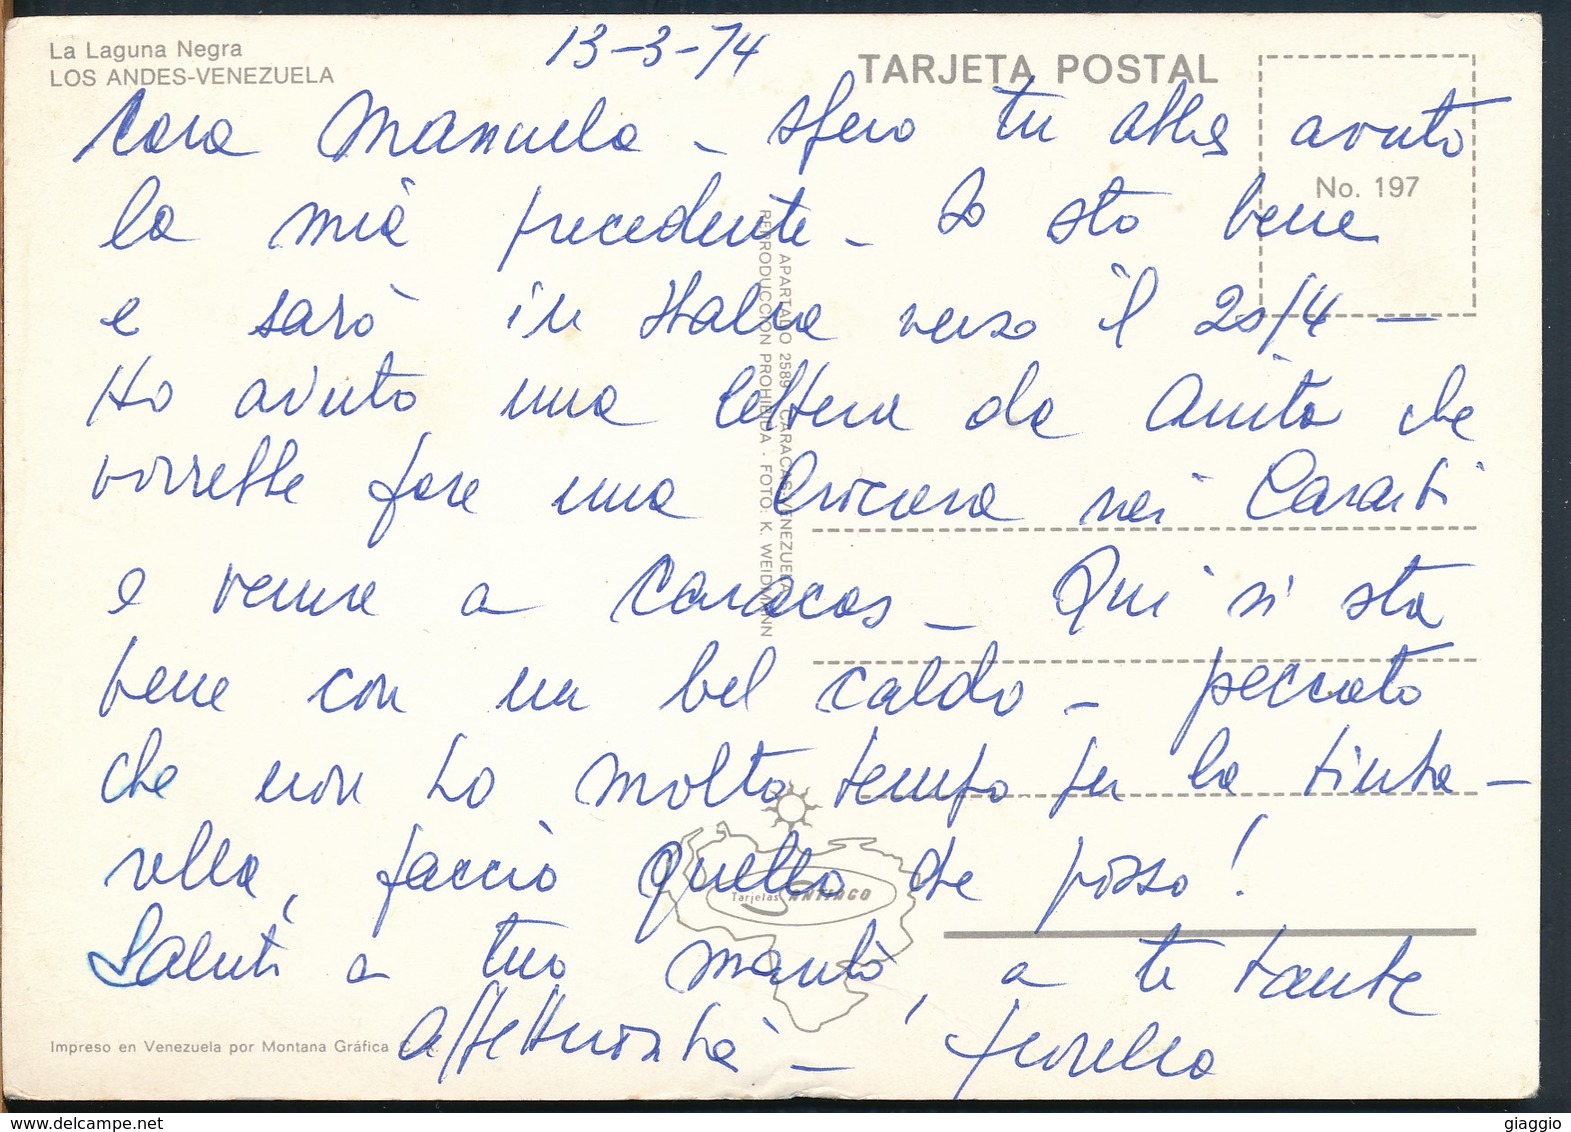 La Laguna Negra
LOS ANDES-VENEZUELA
13-3-74
TARJETA POSTAL
No. 197
Cara Manuela - spero tu abbia avuto
la mia precedente - Io sto bene
e sarò in Italia verso il 20/4 -
Ho avuto una lettera da Anita che
vorrebbe fare una crociera nei Caraibi
e venire a Caracas - Qui si sta
bene con un bel caldo - peccato
che non ho molto tempo per la tinta-
rella, faccio quello che posso!
Saluti a tuo marito, a te tante
affettuosità - Fiorella
APARTADO 2589 CARACAS VENEZUELA
REPRODUCCION PROHIBIDA - FOTO: K. WEIDMANN
Tarjetas SANTIAGO
Impreso en Venezuela por Montana Gráfica
giaggio
www.delcampe.net